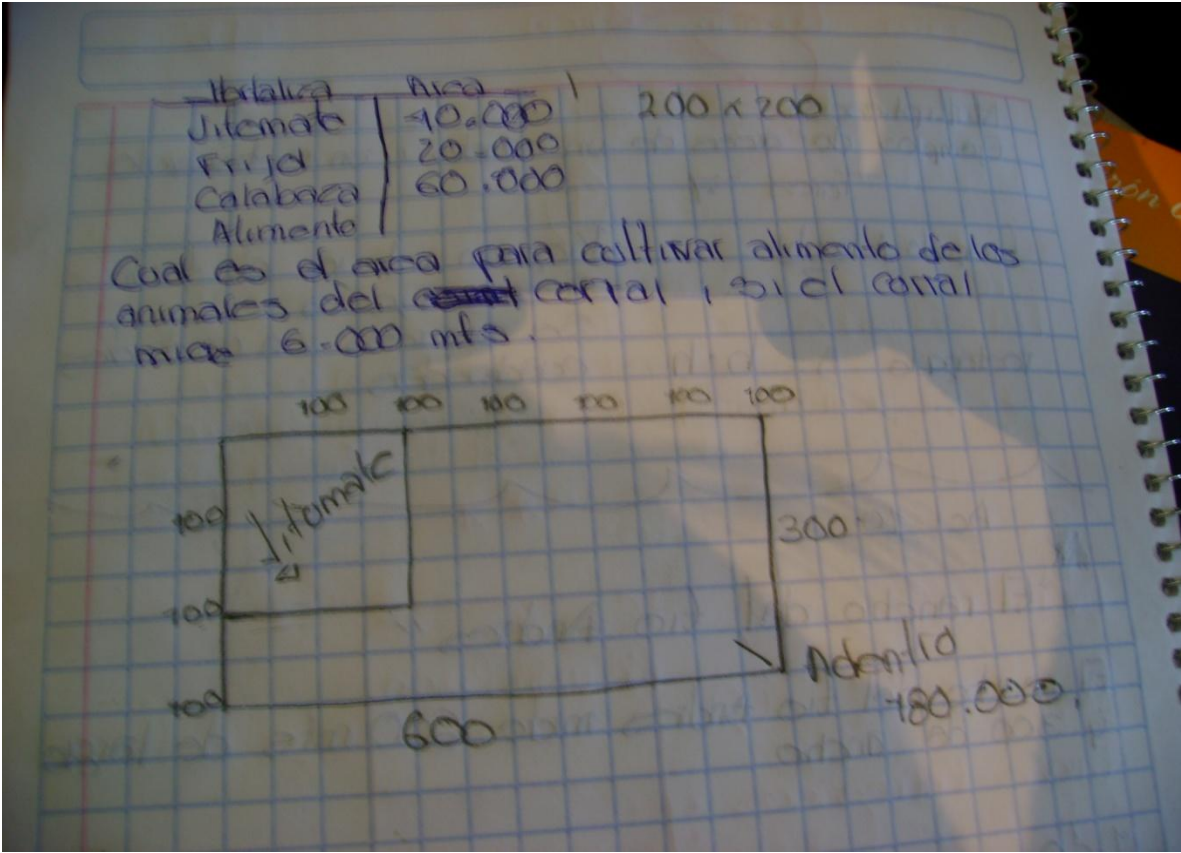 Hortaliza Area
Jitomate 40.000 200 x 200
Frijol 20.000
Calabaza 60.000
Alimento
Cual es el area para cultivar alimento de los
animales del corral, si el corral
mide 6.000 mts.
100 100 100 100 100 100
100
Jitomate
300
100
Adentro
100
180.000.
600